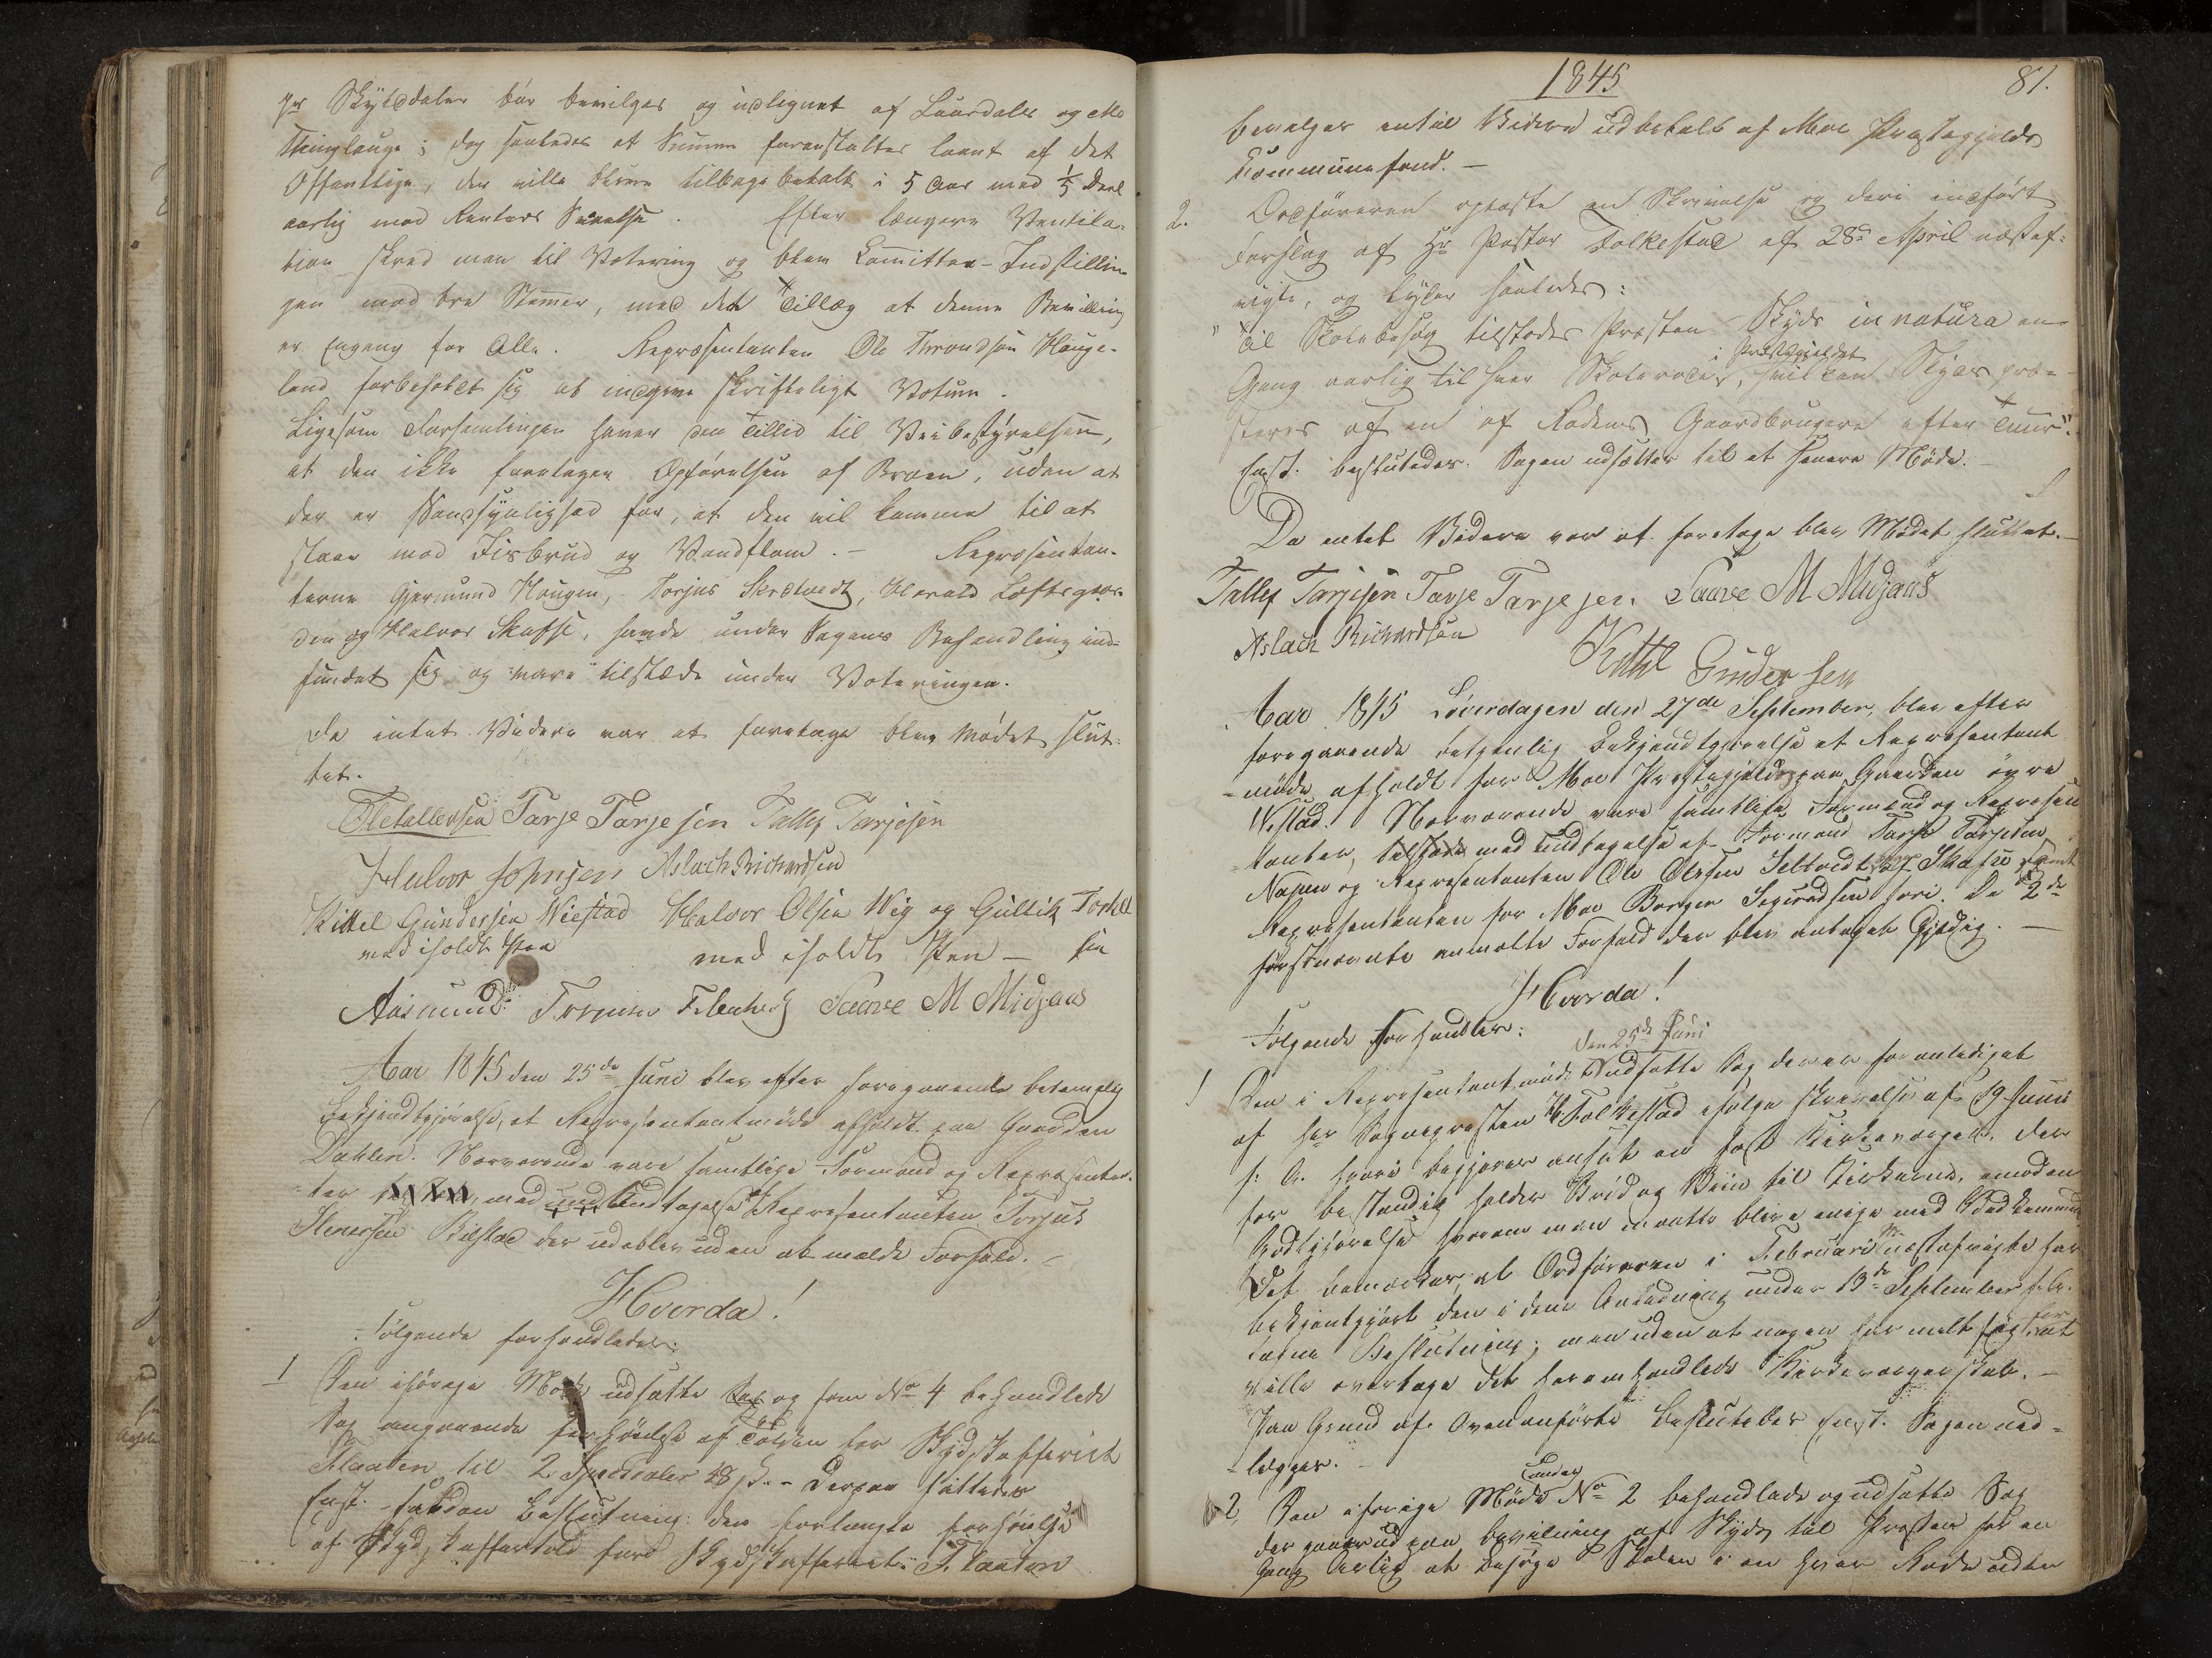 pr Skylddaler bör bevilges og udlignet af Laurdals og Mo
Thinglauge; dog saaledes at Summen foranstaltes laant af det
Offentlige, der ville blive tilbagebetalt i 5 Aar med 1/5 Deel
aarlig med Renters Svarelse. Efter længere Ventila-
tion skred man til Votering og blev Committee-Indstillin
gen med tre Stemmer, med det Tillæg at denne Bevilling
er engang for Alle. Repræsentanten Ole Throndsen Hauge-
land forbeholdt sig at indgive skrifteligt Votum.
Ligesom Forsamlingen haver den Tillid til Veibestyrelsen,
at den ikke foretager Opförelsen af Broen, uden at
der er Sandsynlighed for, at den vil komme til at
staae mod Iisbrud og Vandflom. - Repræsentan-
terne Gjermund Haugen, Torjus Skrædvedt, Harald Loftsgaar-
den og Halvor Skafse, havde under Sagens Behandling ind-
fundet sig og vare tilstæde under Voteringen.
Da intet Videre var at foretage blev Mödet slut-
tet.
Ole Tallevsen Tarje Tarjesen Tallef Tarjesen
Halvor Johnsen Aslach Richardsen
Kittel Gundersen Wiestad Halvor Olsen Wig og Gullik Torkel
med iholdt Pen med iholdt Pen - sen
Aasmund Torjusen Saave M Midjaas
Aar 1845 den 25de Juni blev efter foregaaende betimelig
Bekjendtgjörelse, et Repræsentantmöde afholdt paa Gaarden
Dahlen. Nærværende vare samtlige Formænd og Repræsentan-
ter med Undtagelse Repræsentanten Torjus
Stenersen Bilstad der udeblev uden at melde Forfald. -
Hvorda!
Fölgende forhandledes:
1 Den i forrige Möde udsatte og som No 4 behandlede
Sag angaaende forhöielse af Tolden for Skydsskafferiet
Flaaten til 2 Specidaler 48 s. - Derpaa fattedes
Enst. saadan Beslutning: den forlangte forhöielse
af Skydsskaffertold for Skydsskafferiet Flaaten
1845 81.
bevilges indtil Videre udbetalt af Moe Præstegjelds
Kommunefond. -
2. Ordföreren oplæste en Skrivelse og deri indfört
Forslag af Hr Pastor Folkestad af 28de April næstaf-
vigte, og lyder saaledes:
"Til Skolebesög tilstodes Præsten Skyds in natura en
i Præstegjeldet
Gang aarlig til hver Skolerode, hvilken Skyds præ-
steres af en af Rodens Gaardbrugere efter Tuur".
Enst. besluttedes: Sagen udsættes til et senere Möde. -
Da intet Videre var at foretage blev Mödet sluttet. -
Tallef Tarjesen Tarje Tarjesen. Saave M Midjaas
Aslach Richardsen
Kittel Gundersen
Aar 1845 Löverdagen den 27de September, blev efter
foregaaende betimelig Bekjendtgjörelse et Representant
-möde afholdt for Moe Præstegjeld paa Gaarden övre
Wistad. Nærværende vare samtlige Formænd og Represen
tanter, med Undtagelse af Formand Tarje Tarjesen
Næsen og Repræsentanten Ole Olssen Seltvedt af Skafse samt
Repræsentanten for Moe Borger Sigurdsen hvori. De 2de
förstnævnte anmeldte Forfald der blev antaget Gyldig. -
Hvorda!
Fölgende forhandles:
den 25de Juni
1 Den i Repræsentantmöde udsatte Sag der er foranlediget
af Hr Sognepresten H Folkestad ifölge skrivelse af 19 Junii
f. A. hvori begjæres ansat en fast Kirkeværger, der
for bestandig holder Bröd og Viin til Kirkerne, imod en
Godtgjörelse hvorom man maatte blive enige med Vedkommend
Det bemærkes, at Ordföreren i Februarii næstafvigte har
bekjentgjört den i den Anledning under 13de September f. A.
tagne Beslutning; men uden at nogen har meldt sig for at
ville overtage det heromhandlede Kirkeværgerskab. -
Paa Grund af Ovenanförte besluttedes Enst. Sagen ned-
-lægges.
2 Den i forrige Möde under No 2 behandlede og udsatte Sag
der gaaer ud paa bevilning af Skyds til Præsten for en
Gang Aarlig at besöge Skolen i en hver Rode uden